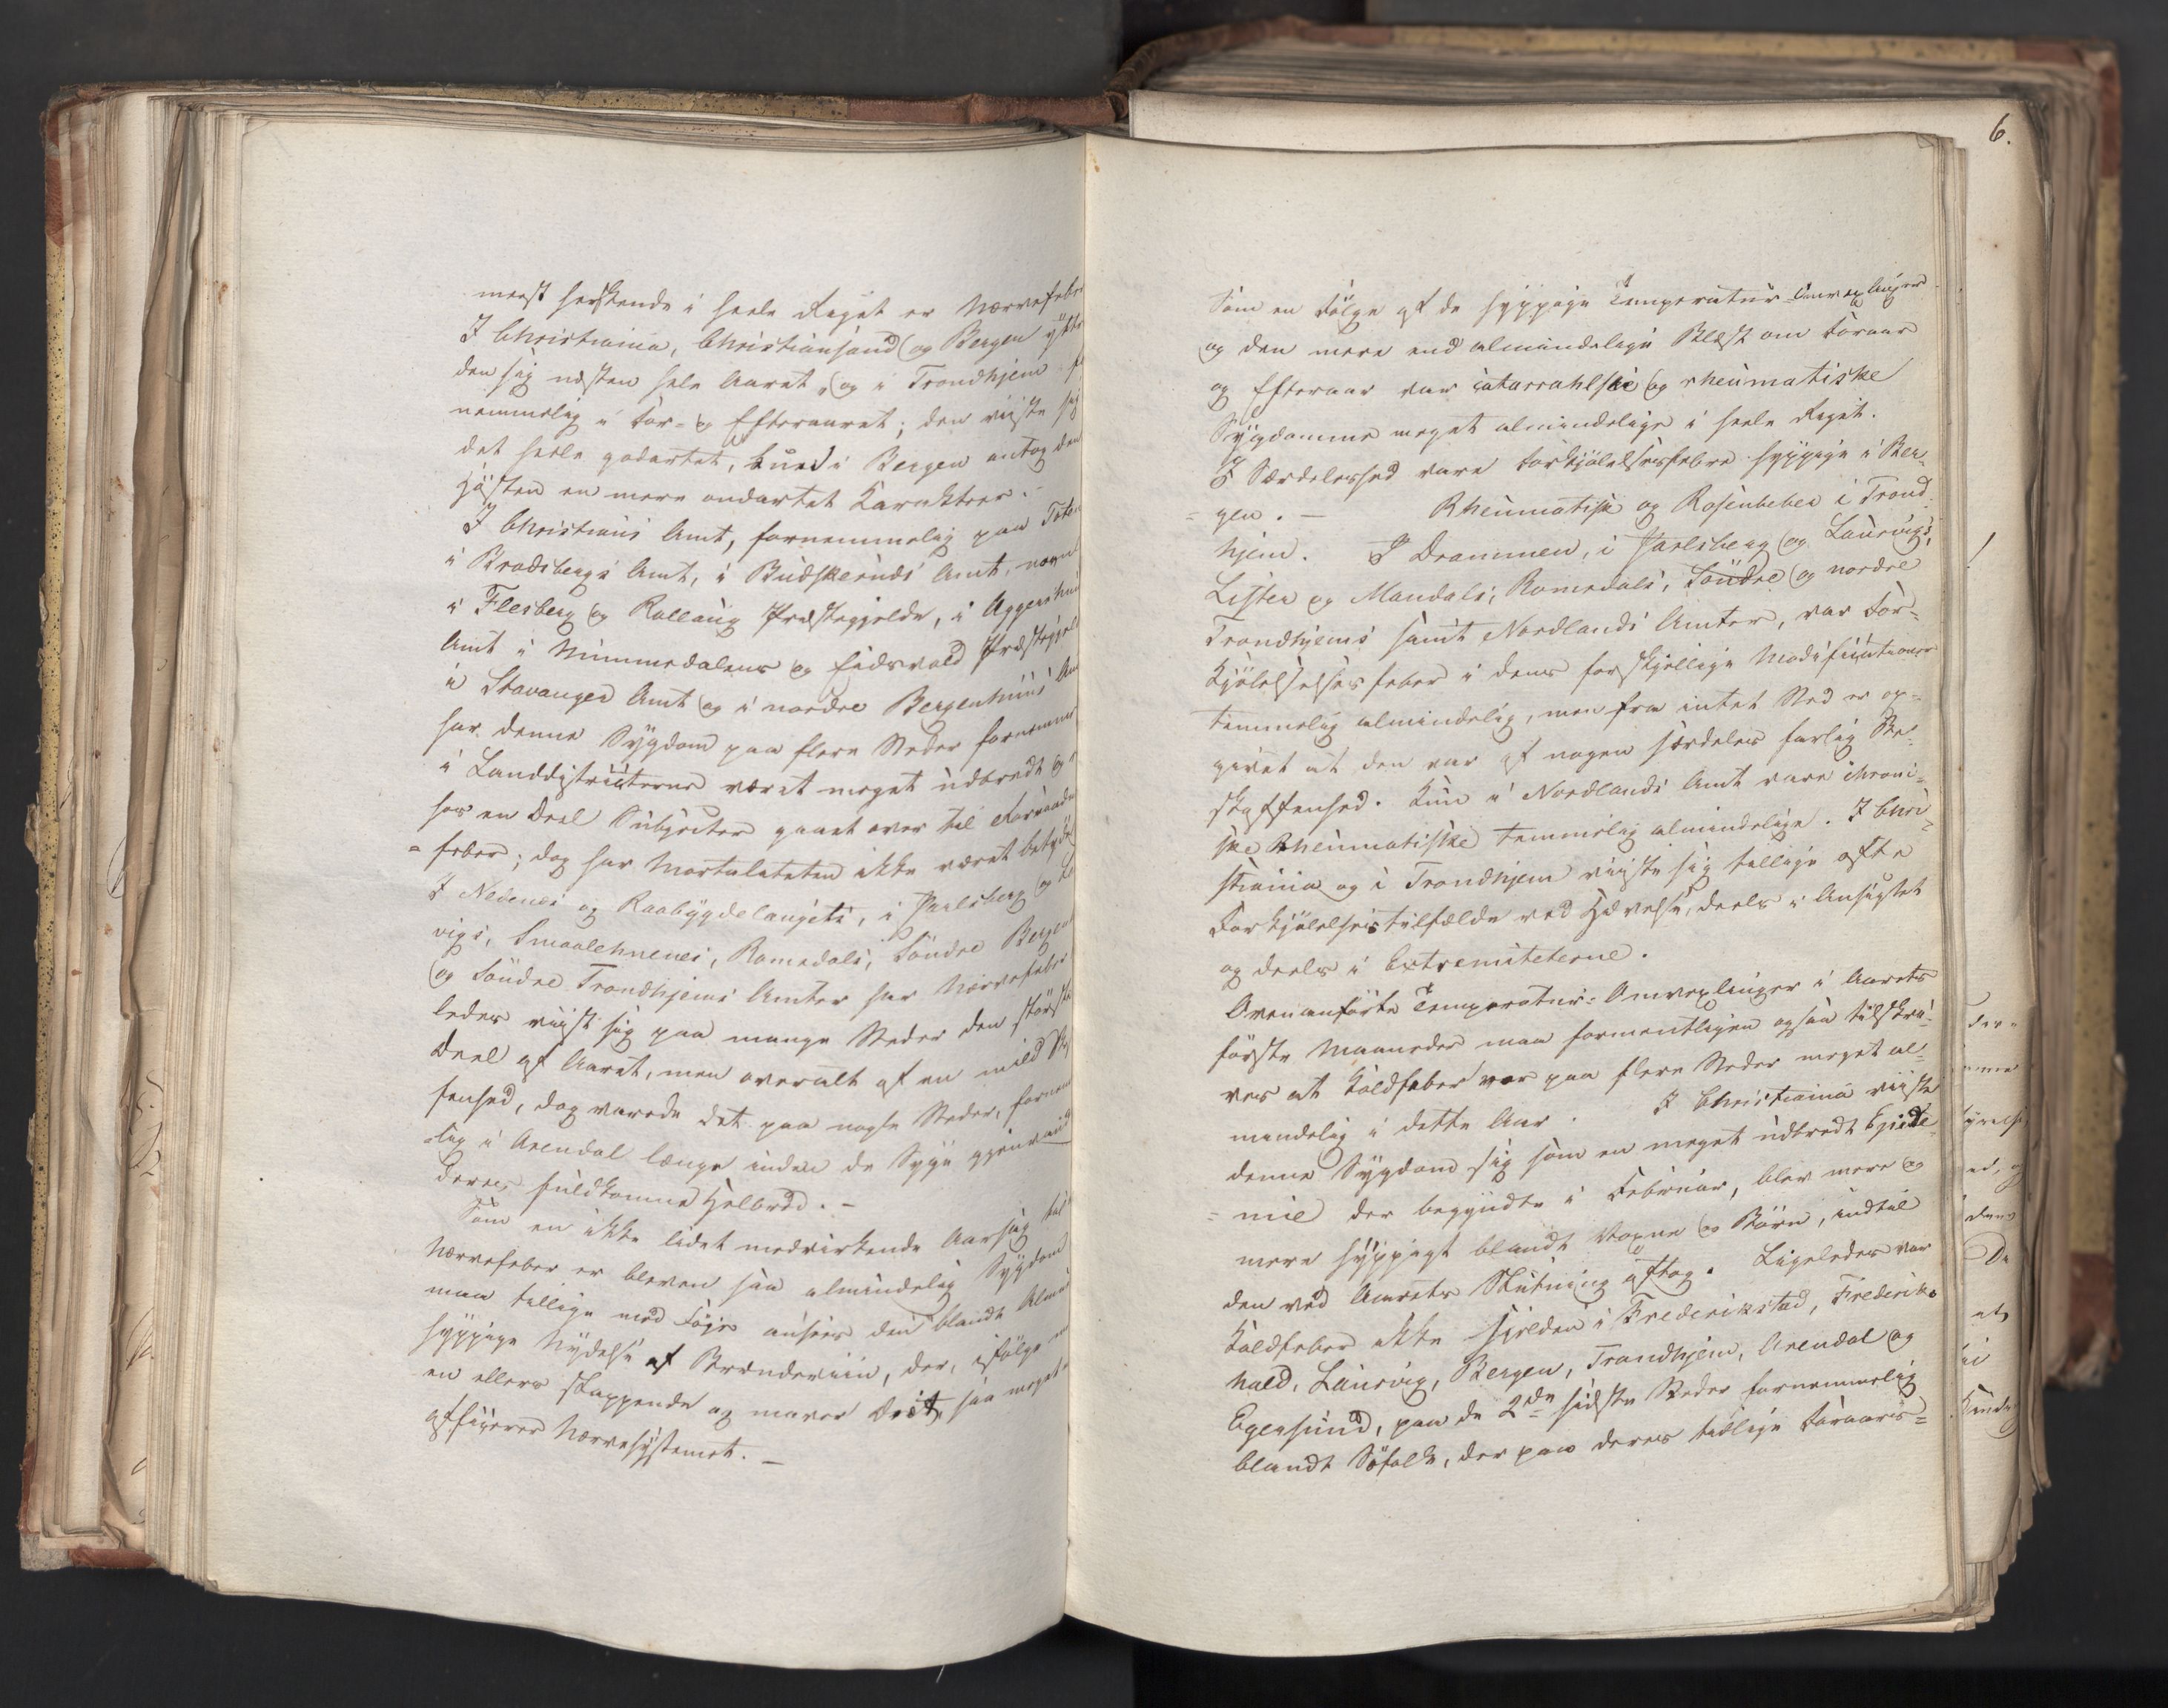 meest herskende i heele Riget er Nervefeber
I Christiania, Christiansand og Bergen yttre
den sig næsten hele Aaret, og i Trondhjem
nemmelig i For- og Efteraaret; den viiste sig
det heele godartet, kun i Bergen antog den
Hösten en mere ondartet Karakteer. -
I Christians Amt, fornemmelig paa Toten
i Bradsbergs Amt, i Budskeruds Amt, navnl
i Flesberg og Rollaug Præstegjelde, i Aggershuus
Amt i Nummedalens og Eidsvold Præstegjeld
i Stavanger Amt og i nordre Bergenhuus Am
har denne Sygdom paa flere Steder fornemme
i Landdistricterne været meget udbredt og
hos en Deel Subjecter gaaet over til Forraadn
= feber; dog har Mortaliteten ikke været betyde
I Nedenes og Raabygdelaugets, i Jarlsberg og La
vigs, Smaalehnenes, Romsdals, Söndre Bergen
og Söndre Trondhjems Amter har Nervefeber
ledes viist sig paa mange Steder den störste
Deel af Aaret, men overalt af en mild Be
fenhed, dog varede det paa nogle Steder, fornem
=lig i Arendal længe inden de Syge gjenvand
deres fuldkomne Helbred. -
Som en ikke lidet medvirkende Aarsag til
Nervefeber er bleven saa almindelig Sygdom
maa tillige med Föje ansees den blandt Almue
hyppige Nydelse af Brændeviin, der, ifölge
en ellers slappende og maver Diæt, saa meget
afficerer Nervesystemet. -
6.
Som en Fölge af de hyppige Temperatur-Omvexlinger
og den mere end almindelige Blæst om Foraar
og Efteraar var catarrahlske og rheumatiske
Sygdomme meget almindelige i heele Riget.
I Særdeleshed vare Forkjölelsesfebre hyppige i Ber-
= gen. - Rheumatisk og Rosenfeber i Trond-
hjem. I Drammen, i Jarlsberg og Laurvigs,
Lister og Mandals, Romsdals, Söndre og nordre
Trondhjems samt Nordlands Amter, var For-
Kjölelsesfeber i dens forskjellige Modificationer
temmelig almindelig, men fra intet Sted er op-
givet at den var af nogen særdeles farlig Be-
skaffenhed. Kun i Nordlands Amt vare chroni-
ske Rheumatiske temmelig almindelige. I Chri-
stiania og i Trondhjem viiste sig tillige ofte
Forkjölelsestilfælde ved Hævelse, deels i Ansigtet
og deels i Extremiteterne.
Ovenanförte Temperatur-Omvexlinger i Aarets
förste Maaneder maa formentligen ogsaa tilskri-
ves at Koldfeber var paa flere Steder meget al-
mindelig i dette Aar. I Christiania viiste
denne Sygdom sig som en meget udbredt Epide-
= mie der begyndte i Februar, blev mere og
mere hyppigt blandt Voxne og Börn, indtil
den ved Aarets Slutning aftog. Ligeledes var
Koldfeber ikke sjelden i Frederikstad, Frederiks-
hald, Laurvig, Bergen, Trondhjem, Arendal og
Egersund, paa de 2de sidste Steder fornemmelig
blandt Söfolk, der paa deres tidlige Foraars-